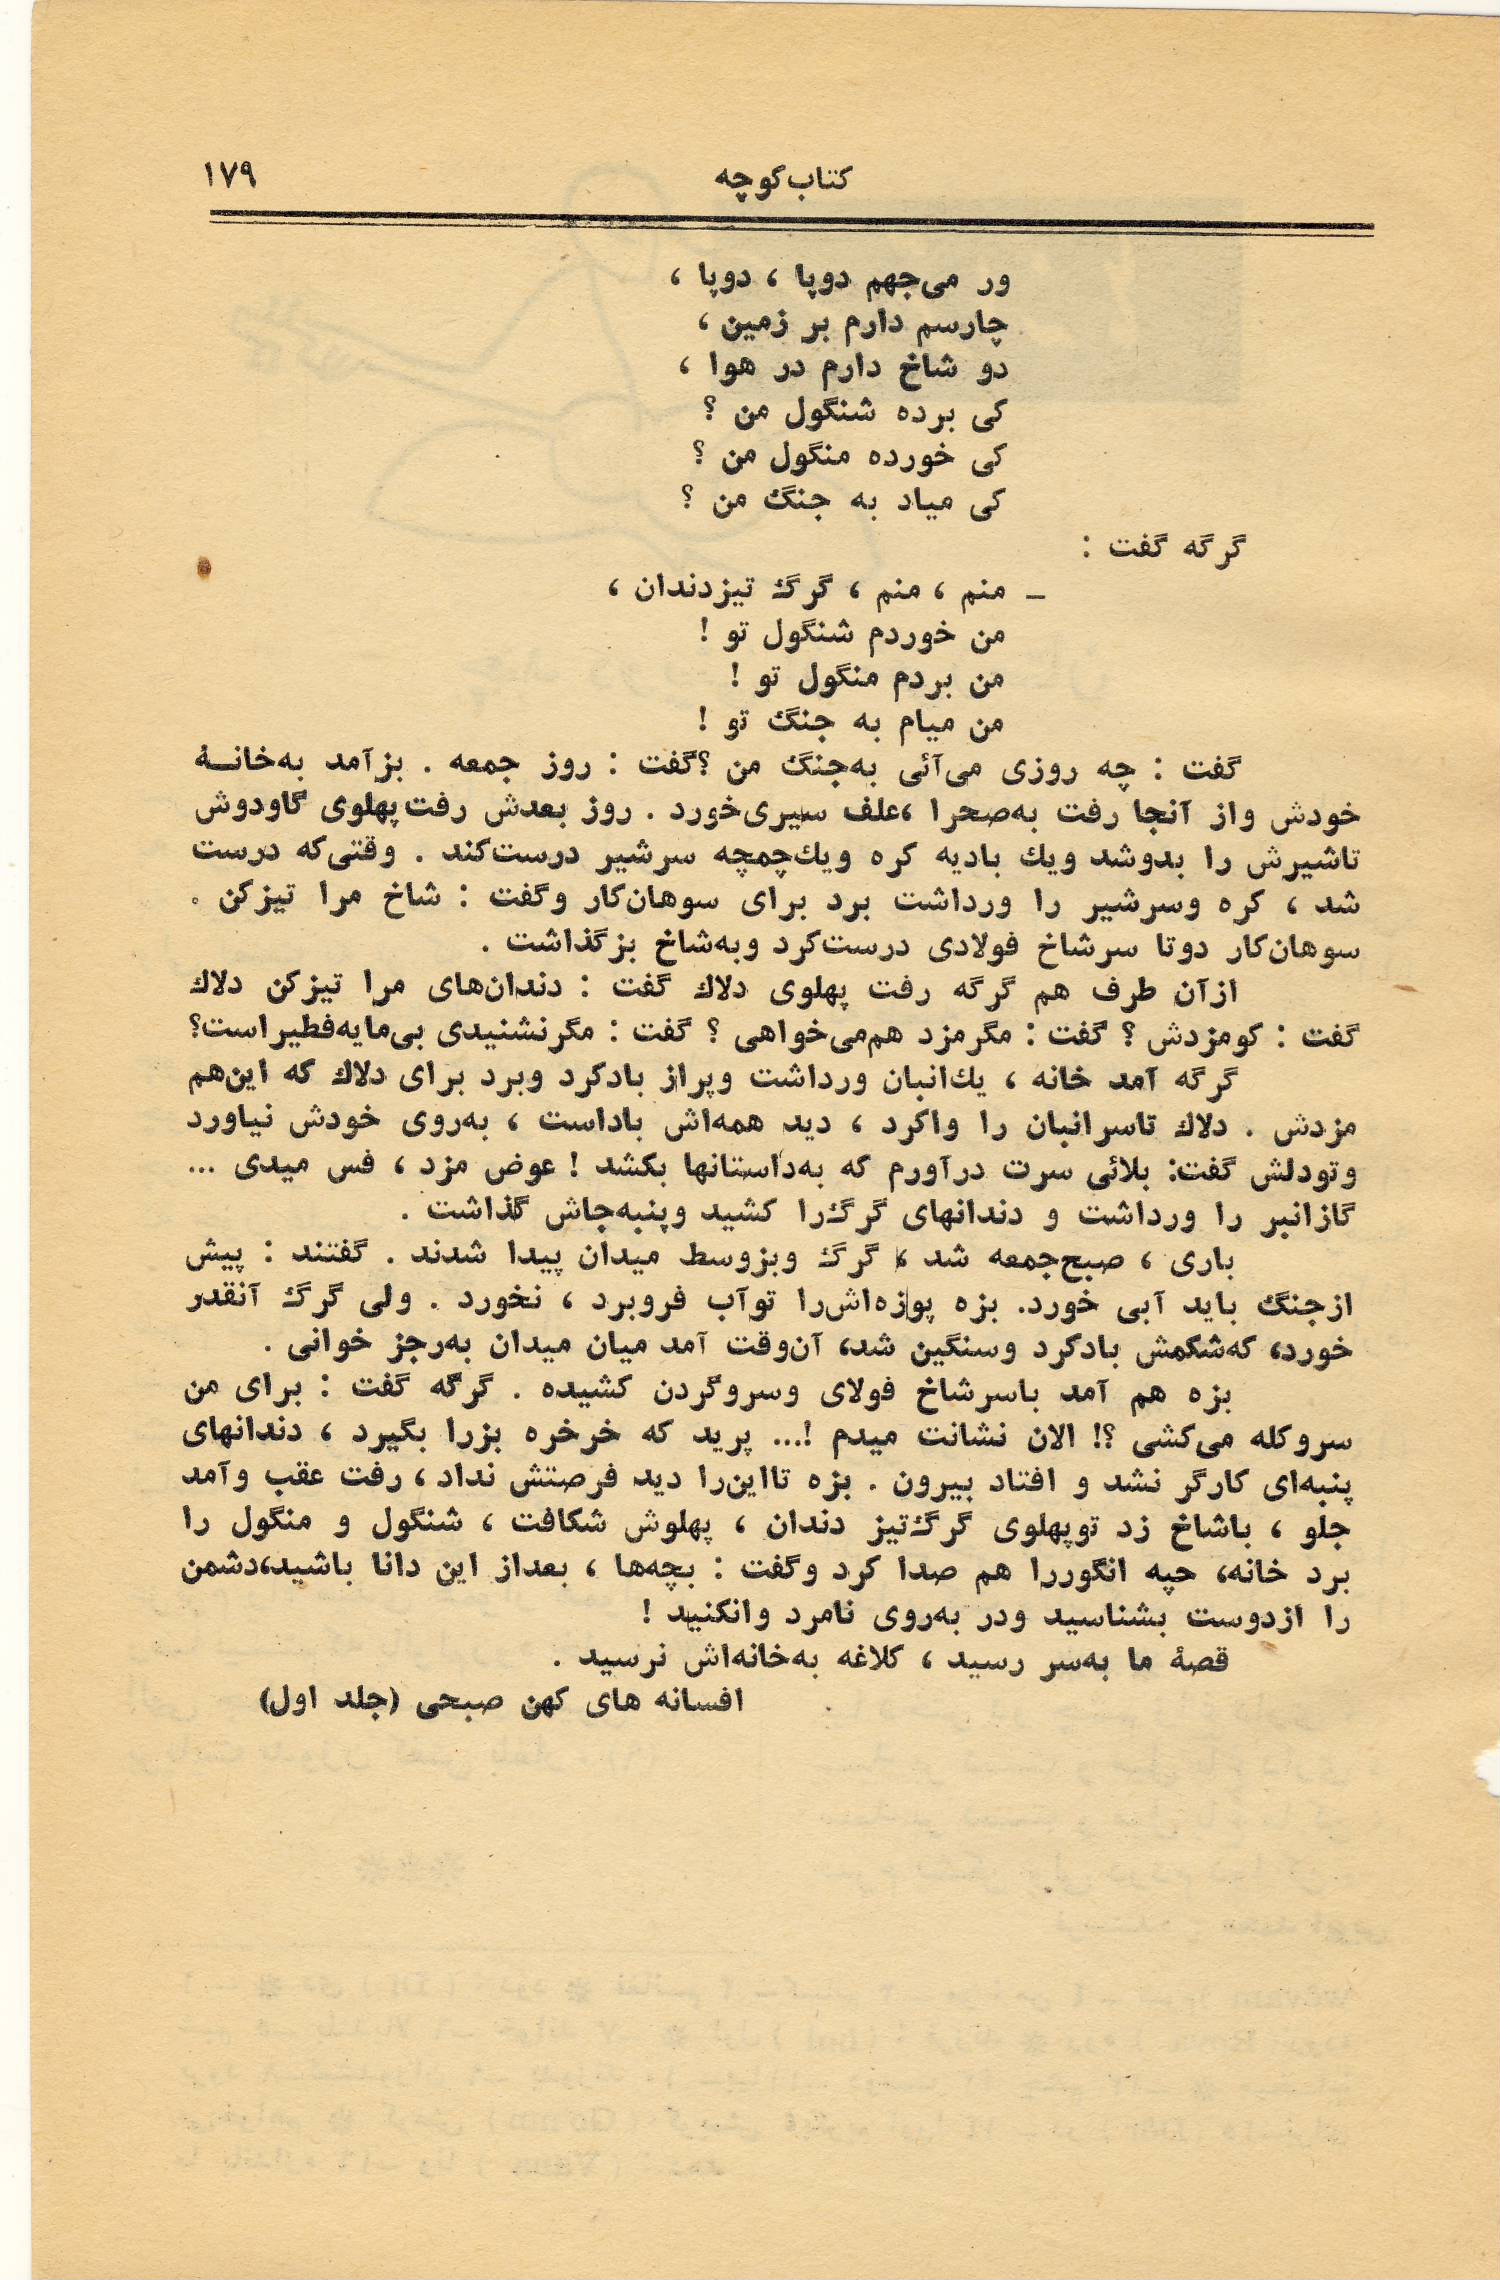 کتاب کوچه
۱۷۹
ور می‌جهم دوپا ، دوپا ،
چارسم دارم بر زمین ،
دو شاخ دارم در هوا ،
کی برده شنگول من ؟
کی خورده منگول من ؟
کی میاد به جنگ من ؟
گرگه گفت :
ـ منم ، منم ، گرگ تیزدندان ،
من خوردم شنگول تو !
من بردم منگول تو !
من میام به جنگ تو !
گفت : چه روزی می‌آئی به‌جنگ من ؟گفت : روز جمعه . بزآمد به‌خانـــهٔ
خودش واز آنجا رفت به‌صحرا ،علف سیری‌خورد . روز بعدش رفت‌پهلوی گاودوش
تاشیرش را بدوشد ویك بادیه کره ویك‌چمچه سرشیر درست‌کند . وقتی‌که درست
شد ، کره وسرشیر را ورداشت برد برای سوهان‌کار وگفت : شاخ مرا تیزکن .
سوهان‌کار دوتا سرشاخ فولادی درست‌کرد وبه‌شاخ بزگذاشت .
ازآن طرف هم گرگه رفت پهلوی دلاك گفت : دندان‌های مرا تیزکن دلاك
گفت : کومزدش ؟ گفت : مگرمزد هم‌می‌خواهی ؟ گفت : مگرنشنیدی بی‌مایه‌فطیراست؟
گرگه آمد خانه ، یك‌انبان ورداشت وپراز بادکرد وبرد برای دلاك که این‌هم
مزدش . دلاك تاسرانبان را واکرد ، دید همه‌اش باداست ، به‌روی خودش نیاورد
وتودلش گفت: بلائی سرت درآورم که به‌داستانها بکشد ! عوض مزد ، فس میدی ...
گازانبر را ورداشت و دندانهای گرگ‌را کشید وپنبه‌جاش گذاشت .
باری ، صبح‌جمعه شد ، گرگ وبزوسط میدان پیدا شدند . گفتند : پیش
ازجنگ باید آبی خورد. بزه پوزه‌اش‌را توآب فروبرد ، نخورد . ولی گرگ آنقدر
خورد، که‌شکمش بادکرد وسنگین شد، آن‌وقت آمد میان میدان به‌رجز خوانی .
بزه هم آمد باسرشاخ فولای وسروگردن کشیده . گرگه گفت : برای من
سروکله می‌کشی ؟! الان نشانت میدم !... پرید که خرخره بزرا بگیرد ، دندانهای
پنبه‌ای کارگر نشد و افتاد بیرون . بزه تااین‌را دید فرصتش نداد ، رفت عقب وآمد
جلو ، باشاخ زد توپهلوی گرگ‌تیز دندان ، پهلوش شکافت ، شنگول و منگول را
برد خانه، حپه انگوررا هم صدا کرد وگفت : بچه‌ها ، بعداز این دانا باشید،دشمن
را ازدوست بشناسید ودر به‌روی نامرد وانکنید !
قصهٔ ما به‌سر رسید ، کلاغه به‌خانه‌اش نرسید .
افسانه های کهن صبحی (جلد اول)